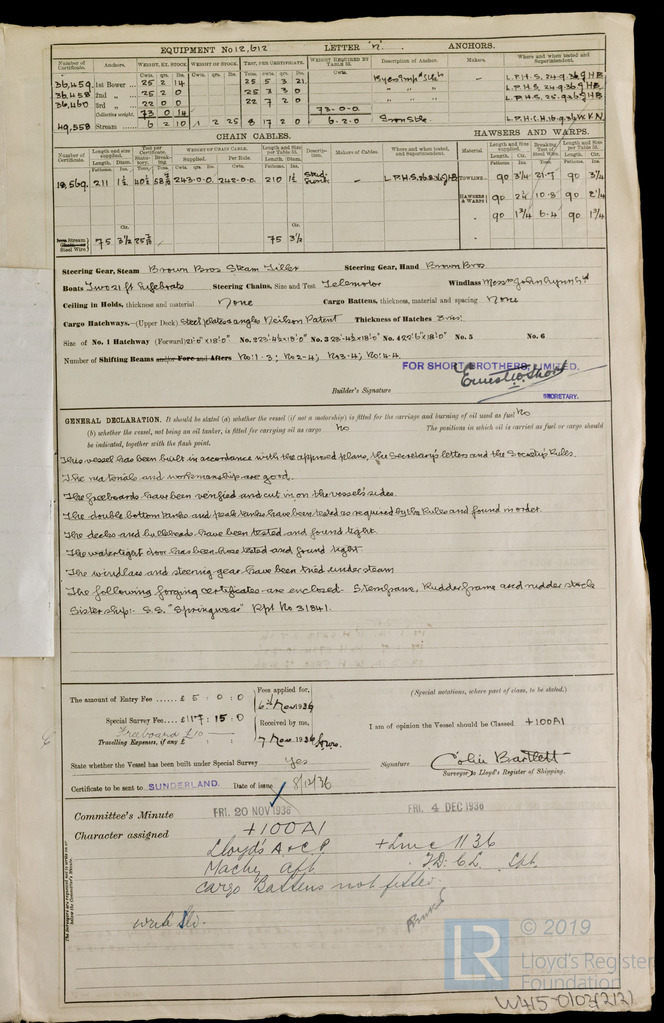 EQUIPMENT No 12,612 LETTER "n". ANCHORS.
Number of Certificate. Anchors. WEIGHT, EX. STOCK. WEIGHT OF STOCK. TEST, PER CERTIFICATE. WEIGHT REQUIRED BY TABLE 53. Description of Anchor. Makers. Where and when tested and Superintendent.
Cwts. qrs. lbs. Cwts. qrs. lbs. Tons. cwts. qrs. lbs. Cwts.
36,459 1st Bower 25 2 14 25 5 3 21 L.P.H.S. 24.9.36 J.H.B.
36,458 2nd " 25 2 0 25 3 3 0 " " " L.P.H.S. 24.9.36 J.H.B.
36,460 3rd " 22 0 0 22 7 2 0 " " " L.P.H.S. 25.9.36 J.H.B.
Collective weight. 73 0 14 73-0-0
49,558 Stream 6 2 10 1 2 25 8 17 2 0 6-2-0 Iron Stk.
CHAIN CABLES. HAWSERS AND WARPS.
Number of Certificate. Length and size supplied. Test per Certificate. WEIGHT OF CHAIN CABLE. Length and Size per Table 53. Description. Makers of Cables. Where and when tested, and Superintendent. Material. Length and Size supplied. Breaking Test of Steel Wire. Length and Size per Table 53.
Supplied. Per Rule.
211 243-0-0 242-0-0 210 TOWLINE 90 3¼ 90 3¼
HAWSERS & WARPS 90 2¼ 10-8 90 2¼
" 90 1¾ 6-4 90 1¾
Steel Wire 75 3½ 75 3½
Steering Gear, Steam Brown Bros Steam Tiller Steering Gear, Hand Brown Bros
Boats Two 21 ft Lifeboats Steering Chains, Size and Test Telemotor Windlass Messrs John Lynn
Ceiling in Holds, thickness and material None Cargo Battens, thickness, material and spacing None
Cargo Hatchways.—(Upper Deck) Steel plates & angles Neilson Patent Thickness of Hatches
Size of No. 1 Hatchway (Forward) 21'-0" x 18'-0" No. 2 23'-4½ x 18'-0" No. 3 28'-4½ x 18'-0" No. 4 No. 5 No. 6
Number of Shifting Beams and/or Fore and Afters No: 1-3; No 2-4; No 3-4; No: 4-4.
FOR SHORT BROTHERS, LIMITED.
Ernest W. Short
Builder's Signature SECRETARY.
GENERAL DECLARATION. It should be stated (a) whether the vessel (if not a motorship) is fitted for the carriage and burning of oil used as fuel No
(b) whether the vessel, not being an oil tanker, is fitted for carrying oil as cargo No The positions in which oil is carried as fuel or cargo should
be indicated, together with the flash point.
This vessel has been built in accordance with the approved plans, the Secretary's letters and the Society's Rules.
The materials and workmanship are good.
The freeboards have been verified and cut in on the vessel's sides.
The double bottom tanks and peak tanks have been tested as required by the Rules and found in order.
The decks and bulkheads have been tested and found tight.
The watertight door has been hose tested and found tight
The windlass and steering gear have been tried under steam
The following forging certificates are enclosed. Sternframe, Rudder frame and rudder stock
Sister ship:- S.S. "Springwear" Rpt No 31841.
The amount of Entry Fee £ 5 : 0 : 0 Fees applied for, (Special notations, where part of class, to be stated.)
6th Nov 1936
Special Survey Fee £117 : 15 : 0 Received by me, I am of opinion the Vessel should be Classed +100A1
Freeboard £10
Travelling Expenses, if any £ 7 Nov. 1936
State whether the Vessel has been built under Special Survey Yes Signature Colin Bartlett
Surveyor to Lloyd's Register of Shipping.
Certificate to be sent to SUNDERLAND. Date of issue 8/12/36
Committee's Minute FRI. 20 NOV 1936 FRI. 4 DEC 1936
Character assigned +100A1
Lloyd's A & C P. + LMC 11 36
Machy aft FD. CL.
cargo battens not fitted.
The Surveyors are requested not to write on or below the Committee's Minute.
LR © 2019
Lloyd's Register
Foundation
W415-0103(2/2)